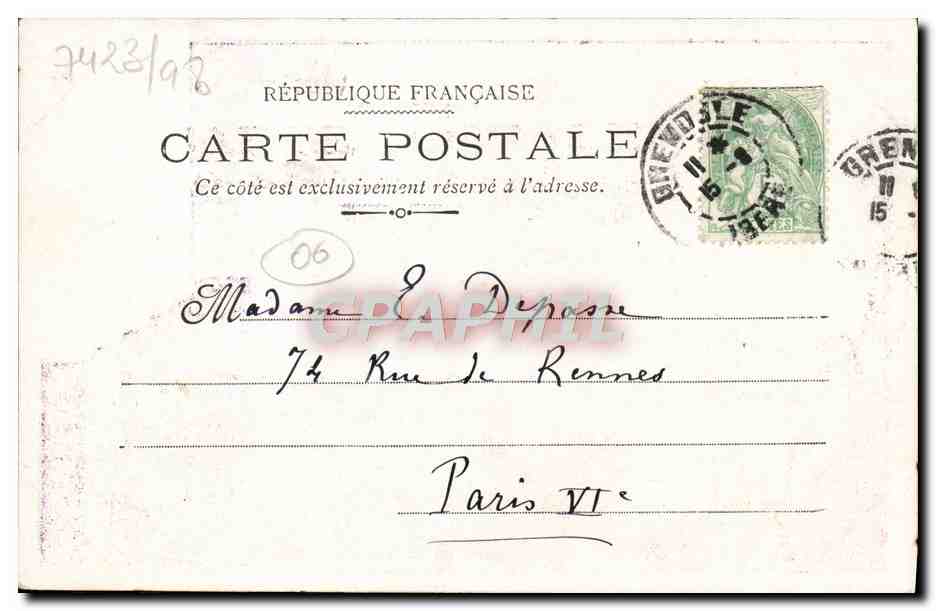 7423/98
RÉPUBLIQUE FRANÇAISE
CARTE POSTALE
Ce côté est exclusivement réservé à l'adresse.
GRENOBLE
11
15
ISÈRE
GREN
11
15
06
Madame E. Depasse
CPAPHIL
74 Rue de Rennes
Paris VIe